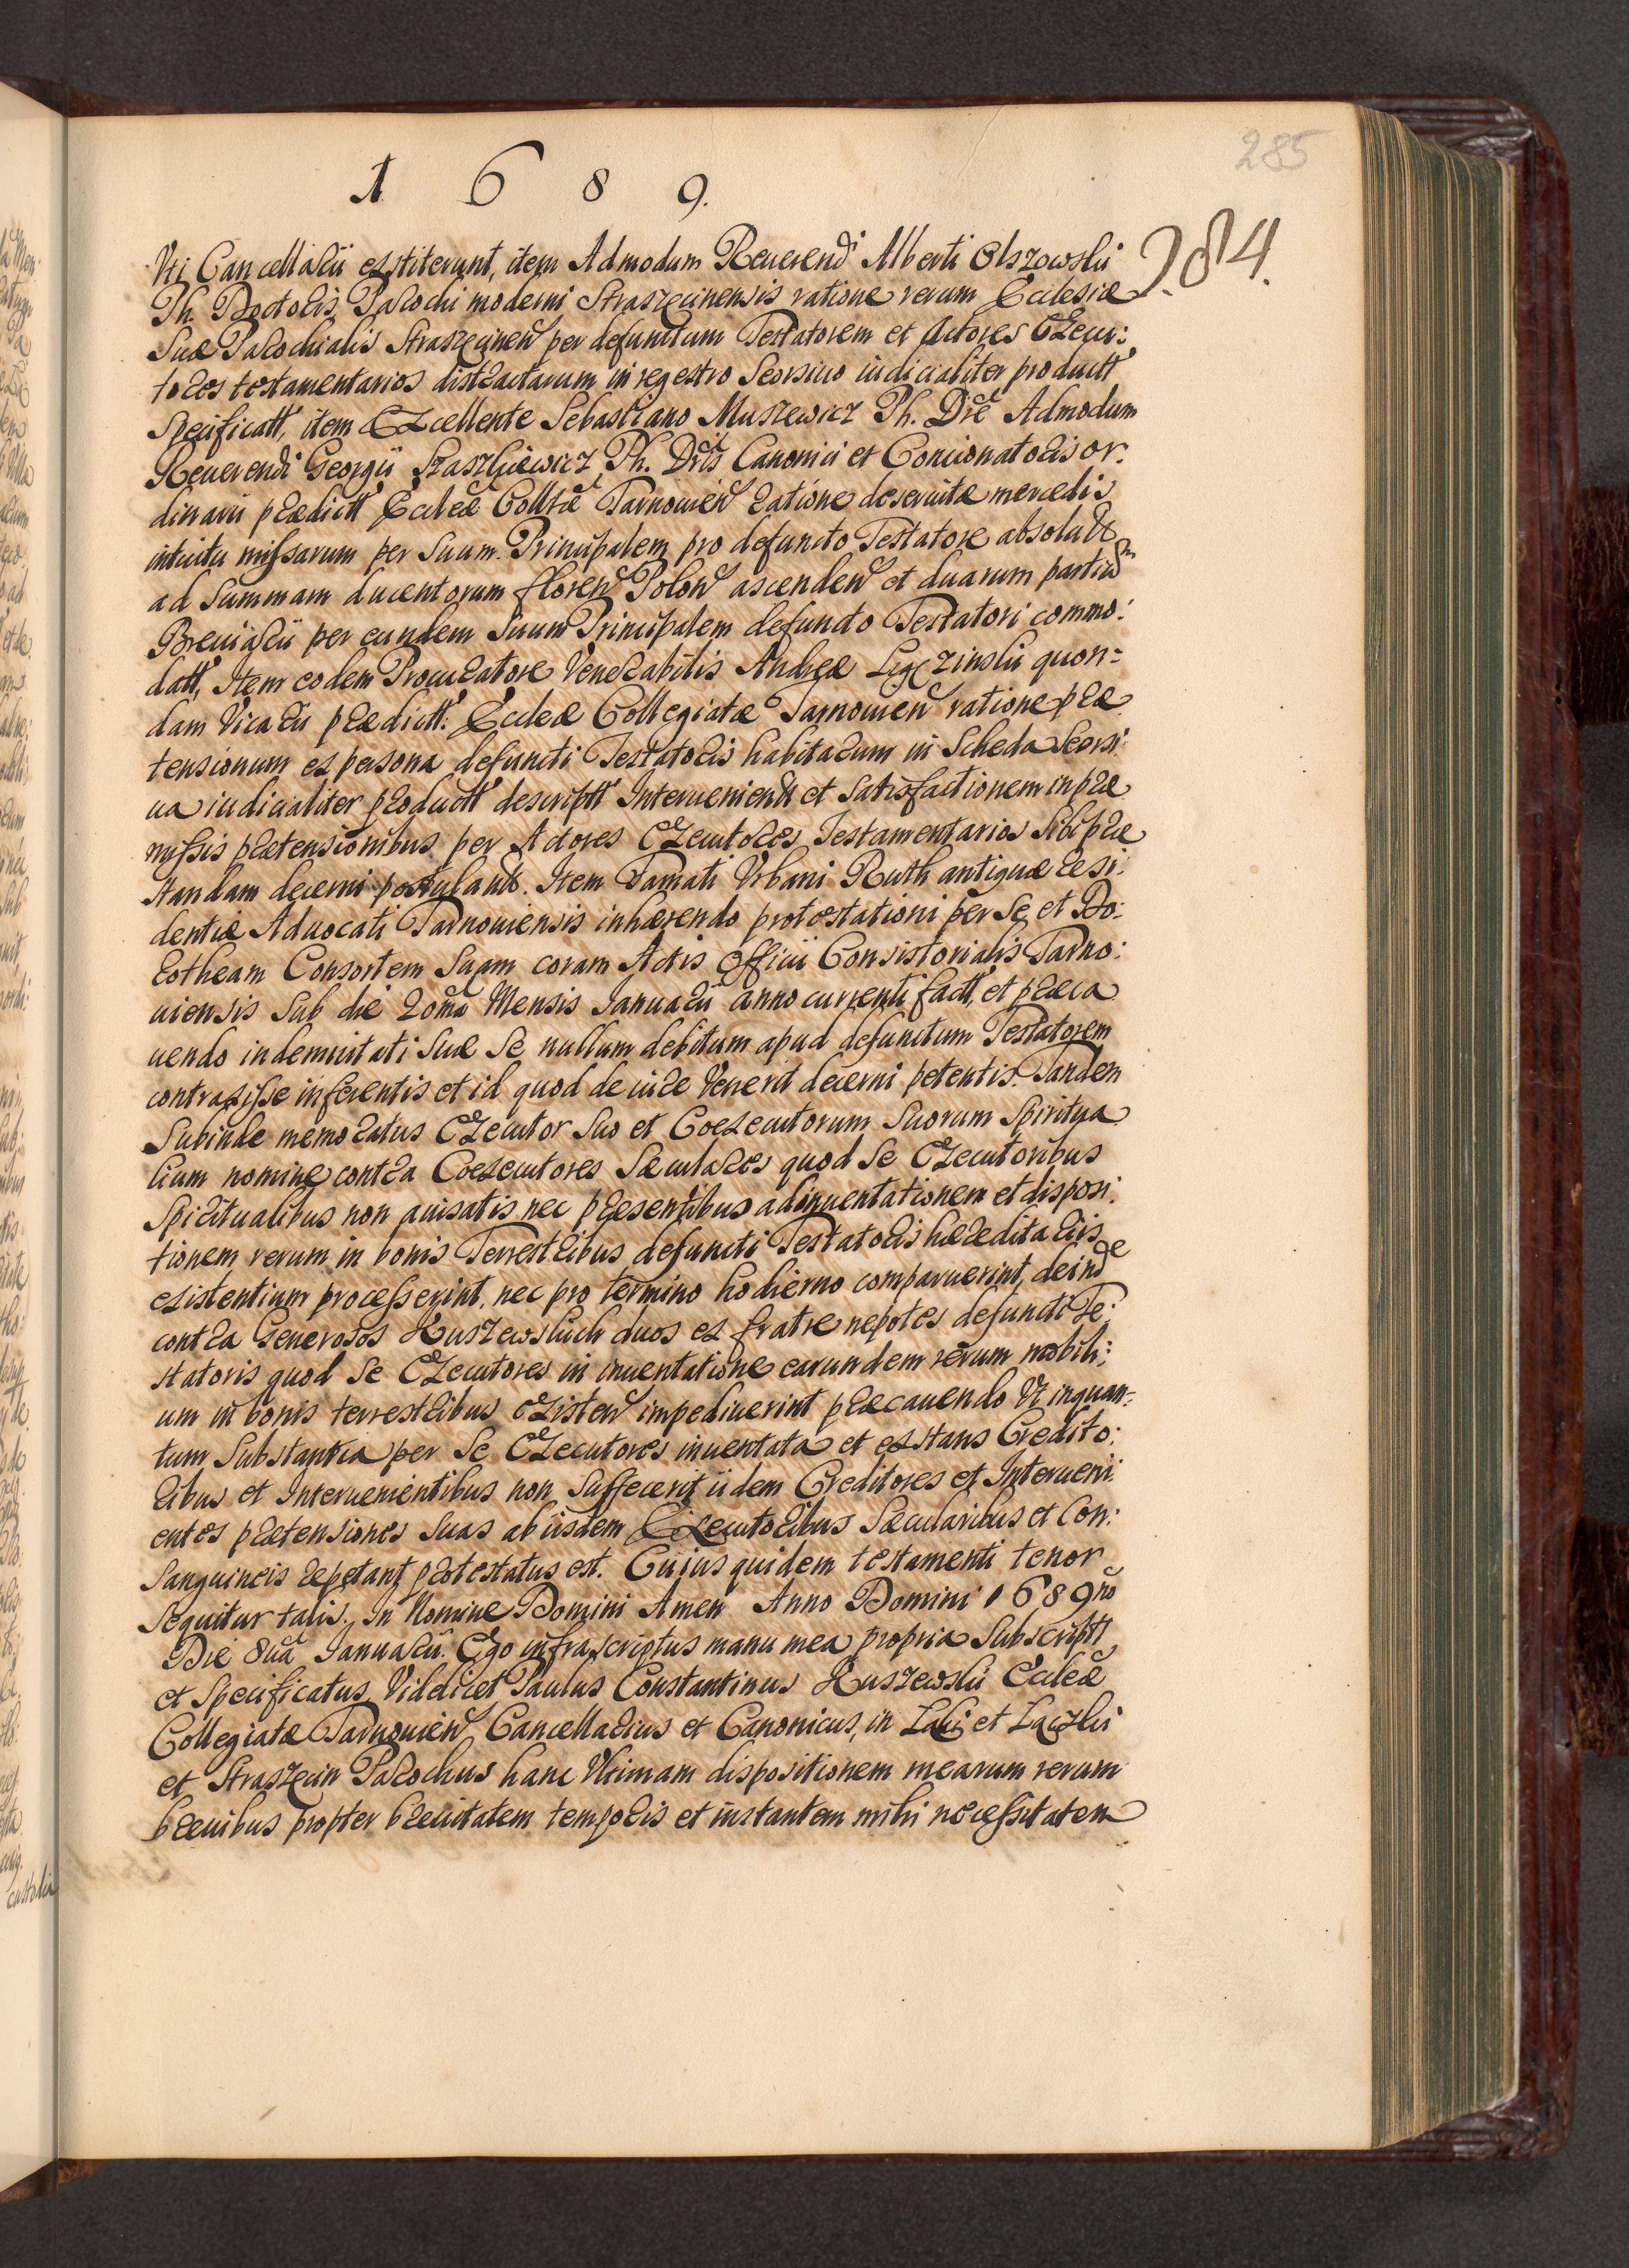 285
1 6 8 9.
284.
Vti Cancellarii exstiterunt, item Admodum Reuerendi Alberti Olszowski
Ph. Doctoris Parochi moderni Straszecinensis ratione rerum Ecclesiæ
Suæ Parochialis Straszecinen per defunctum Testatorem et Actores Execu:
tores testamentarios distractarum in regestro Seorsiuo iudicialiter productt
Specificatt, item Excellente Sebastiano Muszewicz Ph. Dre Admodum
Reuerendi Georgii Staszkiewicz Ph. Dris Canonici et Concionatoris or:
dinarii prædictt Eccleæ Colltæ Tarnouien ratione deseruitæ mercedis
intuitu missarum per Suum Principalem pro defuncto Testatore absolutt
ad Summam ducentorum floren Polon ascenden et duarum partium
Breuiarii per eundem Suum Principalem defuncto Testatori commo:
datt, Item eodem Procuratore Venerabilis Andreæ quon=
dam Vicarii prædictt: Eccleæ Collegiatæ Tarnouien ratione præ
tensionum ex persona defuncti Testatoris habitarum in Scheda Seorsi:
ua iudicialiter productt descriptt Interuenientt et Satisfactionem in præ
missis prætensionibus per Actores Executores Testamentarios Sibi præ
standam decerni postulantt. Item Famati Vrbani Ruth antiquæ resi:
dentiæ Aduocati Tarnouiensis inhærendo protestationi per Se et Do:
rotheam Consortem Suam coram Actis Officii Consistorialis Tarno:
uiensis Sub die 20ma Mensis Januarii anno currenti factt, et præca
uendo indemnitati Suæ Se nullum debitum apud defunctum Testatorem
contraxisse inferentis et id quod de iure Venerit decerni petentis. Tandem
Subinde memoratus Executor Suo et Coexecutorum Suorum Spiritua
lium nomine contra Coexecutores Sæculares quod Se Executoribus
Spiritualibus non auisatis nec præsentibus ad inuentationem et disposi:
tionem rerum in bonis Terrestribus defuncti Testatoris hæreditariis
existentium processerint, nec pro termino hodierno comparuerint, deinde
contra Generosos Kuszewskich duos ex fratre nepotes defuncti Te:
statoris quod Se Executores in inuentatione earundem rerum mobili:
um in bonis terrestribus existen impediuerint præcauendo Vt inquan=
tum Substantia per Se Executores inuentata et exstans Credito:
ribus et Interuenientibus non Suffecerit iidem Creditores et Interueni:
entes prætensiones Suas ab iisdem Executoribus Sæcularibus et Con:
Sanguineis repetant protestatus est. Cuius quidem testamenti tenor
Sequitur talis. In Nomine Domini Amen Anno Domini 1689no
Die 8ua Januarii. Ego infrascriptus manu mea propria Subscriptt
et Specificatus Videlicet Paulus Constantinus Kuszewski Eccleæ
Collegiatæ Tarnouien Cancellarius et Canonicus, in Łęki et Łączki
et Straszecin Parochus hanc Vltimam dispositionem mearum rerum
breuibus propter breuitatem temporis et instantem mihi necessitatem